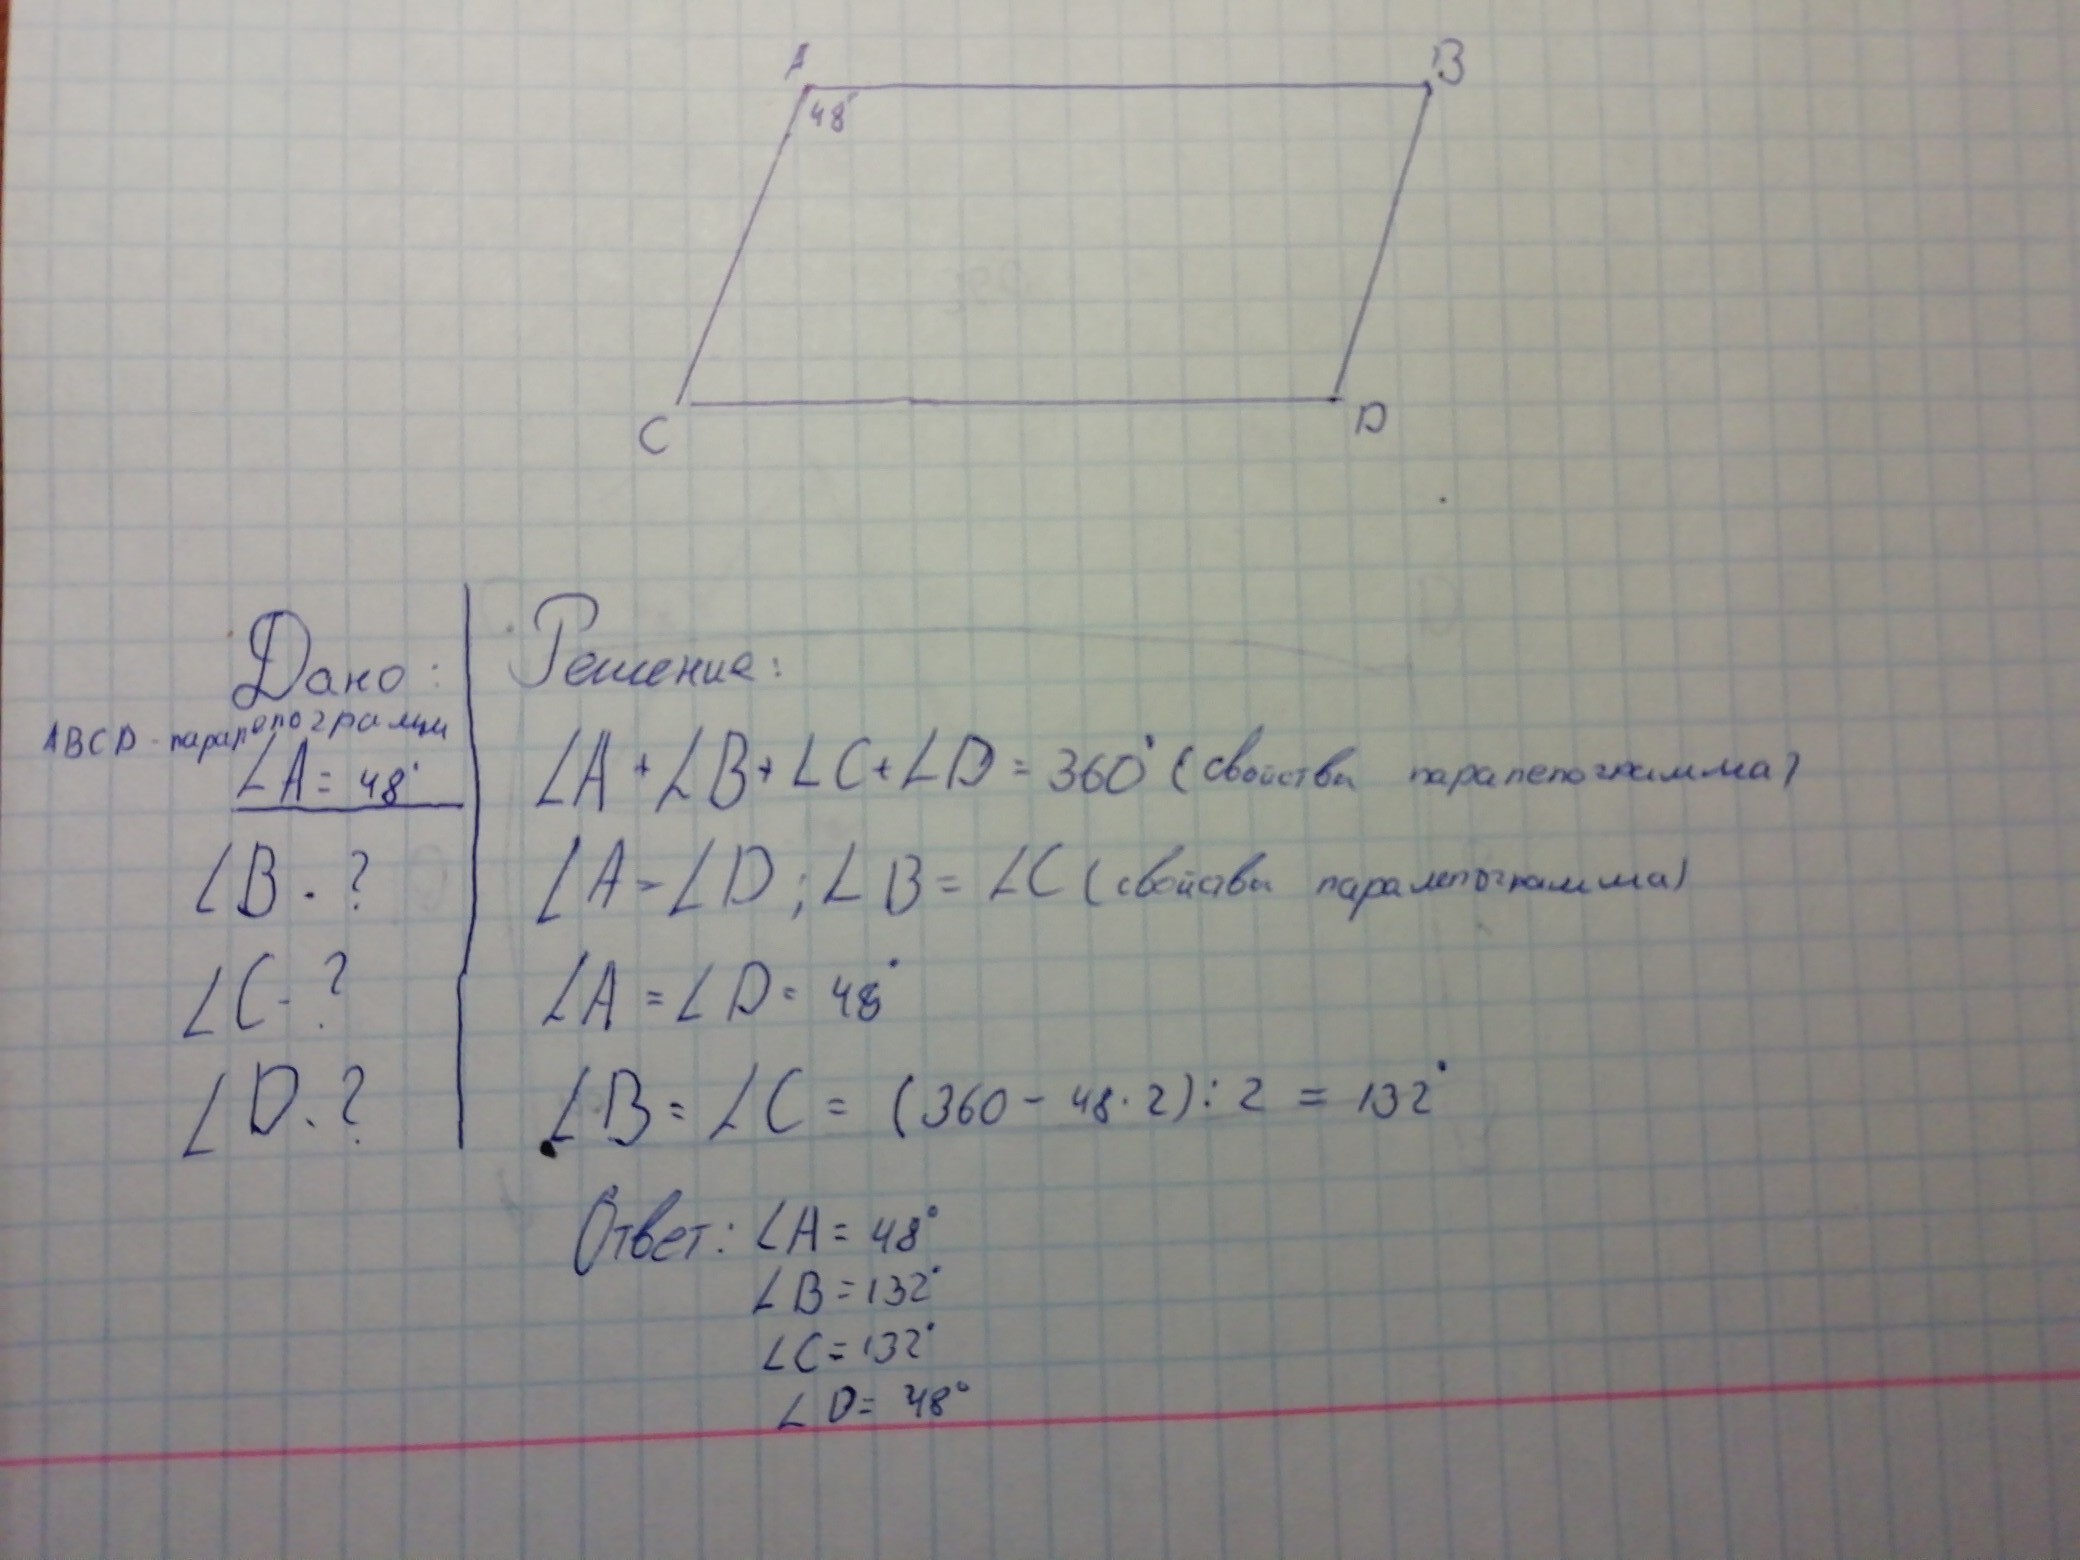 A
B
48°
C
D
Дано:
ABCD - параллелограмм
∠A = 48°
∠B - ?
∠C - ?
∠D - ?
Решение:
∠A + ∠B + ∠C + ∠D = 360° (свойства параллелограмма)
∠A = ∠D ; ∠B = ∠C (свойства параллелограмма)
∠A = ∠D = 48°
∠B = ∠C = (360 - 48 · 2) : 2 = 132°
Ответ: ∠A = 48°
∠B = 132°
∠C = 132°
∠D = 48°